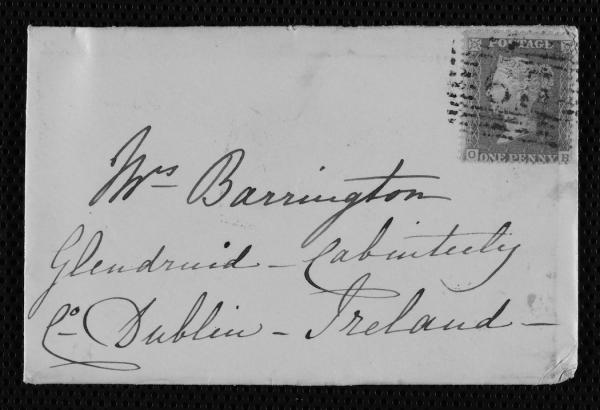 POSTAGE
ONE PENNY
Mrs Barrington
Glendruid - Cabinteely
Co Dublin - Ireland -